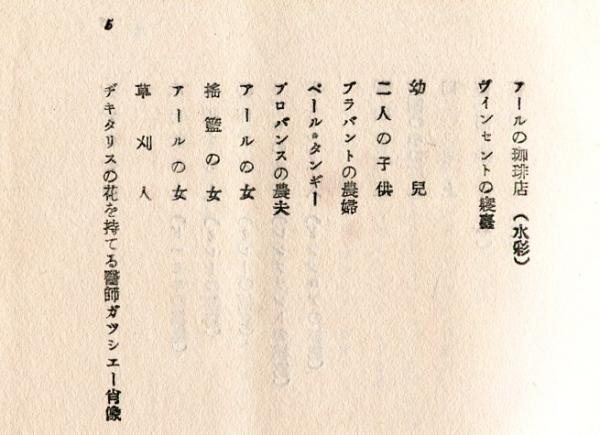 アールの珈琲店（水彩）
ヴインセントの寝臺
幼兒
二人の子供
ブラバントの農婦
ペール・タンギー
プロバンスの農夫
アールの女
搖籃の女
アールの女
草刈人
ヂキタリスの花を持てる醫師ガツシエー肖像
5